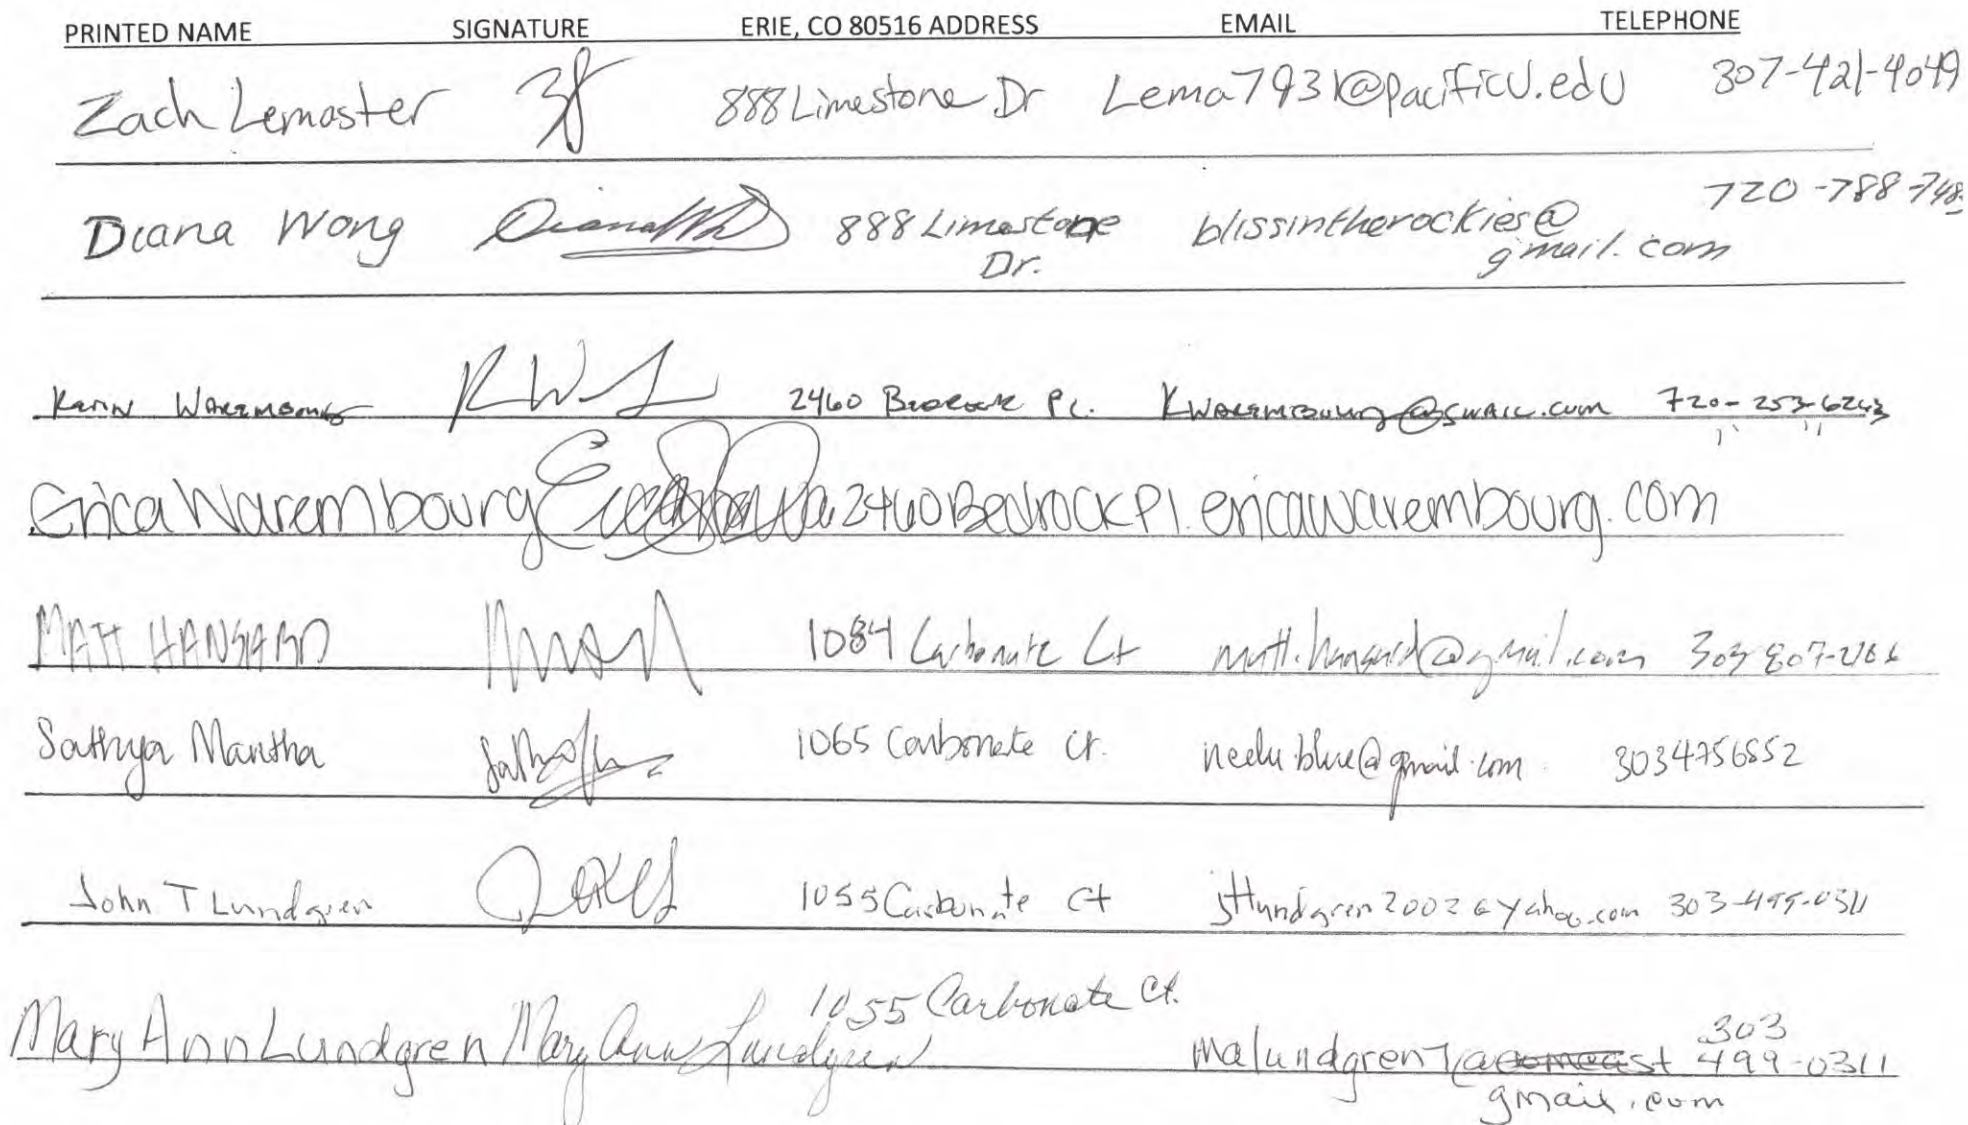 PRINTED NAME SIGNATURE ERIE, CO 80516 ADDRESS EMAIL TELEPHONE
Zach Lemaster 888 Limestone Dr Lema7931@pacificU.edu 307-421-4049
Diana Wong 888 Limestone blissintherockies@ 720-788-748
Dr. gmail.com
Warembourg 2460 Bedrock Pl. Kwarembourg@gmail.com 720-253-6243
Erica Warembourg 2460 Bedrock Pl. ericawarembourg.com
MATT HANSARD 1084 Carbonate Ct matt.hansard@gmail.com 303 807-2166
Sathya Mantha 1065 Carbonate Ct. neelublue@gmail.com 3034756552
John T Lundgren 1055 Carbonate Ct jtlundgren2002@yahoo.com 303-499-0311
1055 Carbonate Ct.
Mary Ann Lundgren Mary Ann Lundgren malundgren7@comcast 303
499-0311
gmail.com